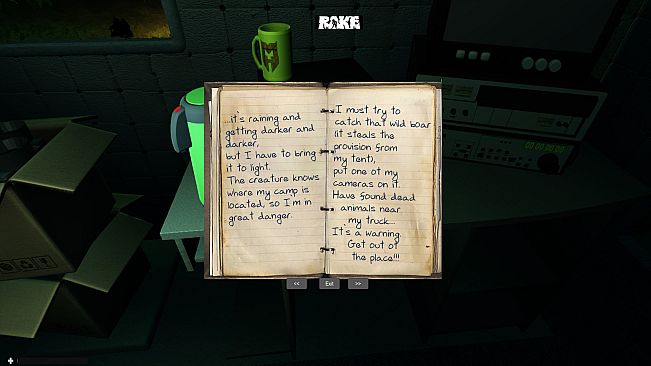 RAKE
...it's raining and
getting darker and
darker,
but I have to bring
it to light.
The creature knows
where my camp is
located, so I'm in
great danger.
I must try to
catch that wild boar
(it steals the
provision from
my tent),
put one of my
cameras on it.
Have found dead
animals near
my truck...
It's a warning.
Get out of
the place!!!
<<
Exit
>>
00:00:00:00